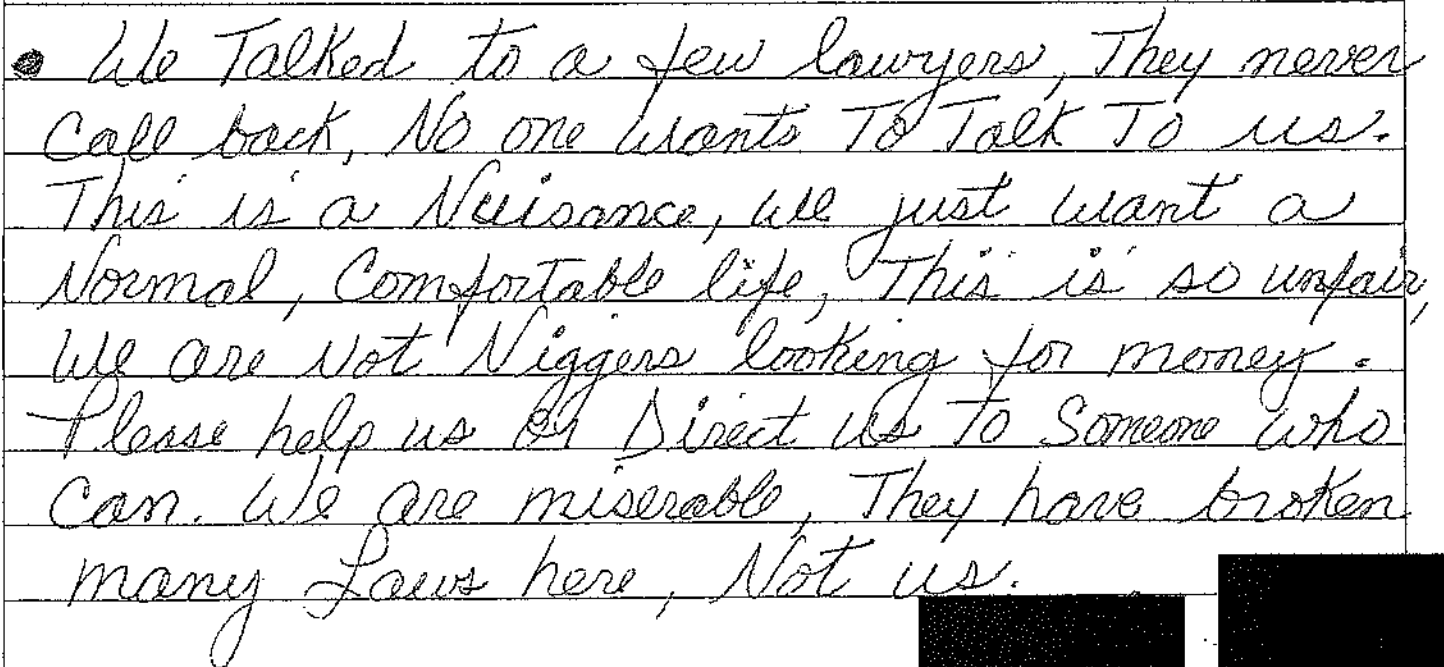 • We Talked to a few lawyers, They never
Call back, No one wants To Talk To us.
This is a Nuisance, We just want a
Normal, Comfortable life, This is so unfair,
We are Not Niggers looking for money.
Please help us or Direct us To Someone who
Can. We are miserable, They have broken
many Laws here, Not us.